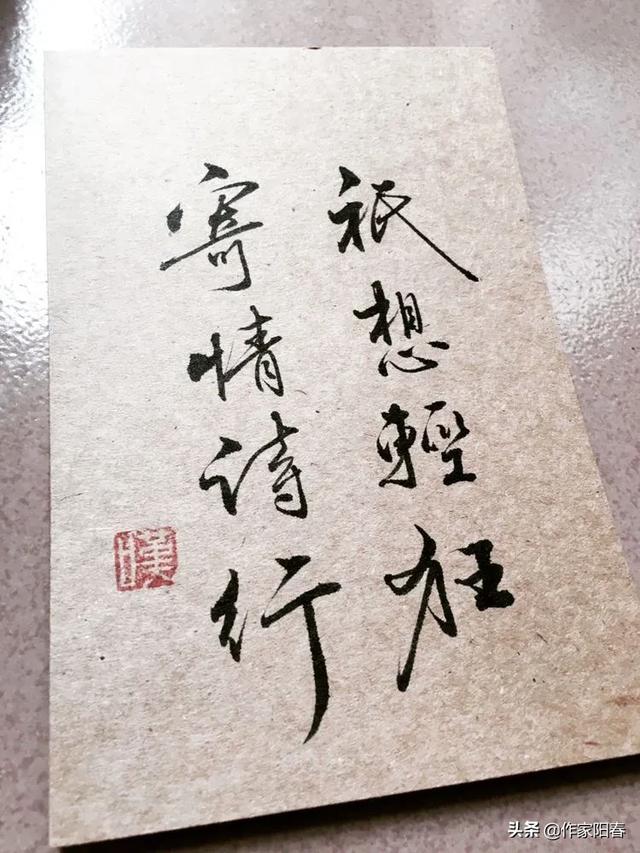 祇想輕狂
寄情诗行
头条 @作家阳春